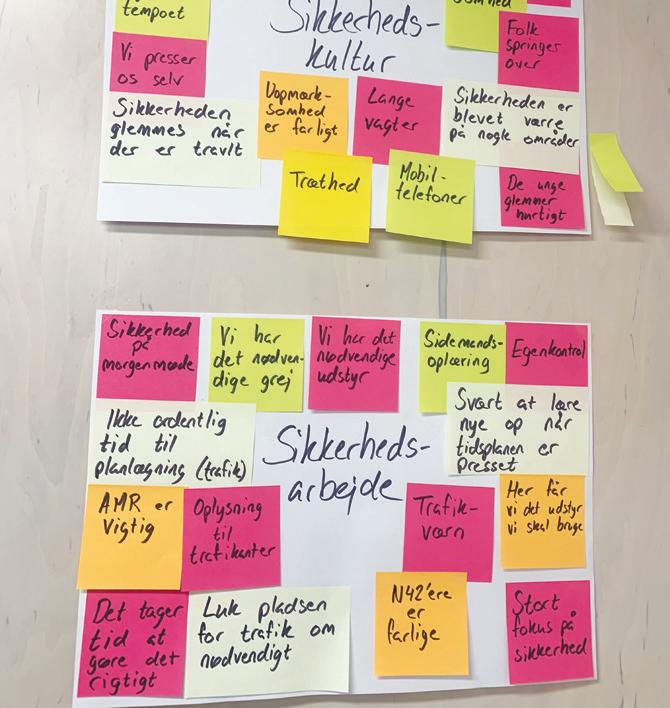 tempoet
Sikkerheds-
kultur
Folk
springer
over
Vi presser
os selv
Sikkerheden
glemmes når
der er travlt
Uopmærk-
somhed
er farligt
Lange
vagter
Sikkerheden er
blevet værre
på nogle områder
Træthed
Mobil-
telefoner
De unge
glemmer
hurtigt
Sikkerhed
på
morgenmøde
Vi har
det nødven-
dige grej
Vi har det
nødvendige
udstyr
Sidemands-
oplæring
Egenkontrol
Ikke ordentlig
tid til
planlægning (trafik)
Sikkerheds-
arbejde
Svært at lære
nye op når
tidsplanen er
presset
AMR er
vigtig
Oplysning
til
trafikanter
Trafik-
værn
Her får
vi det udstyr
vi skal bruge
Det tager
tid at
gøre det
rigtigt
Luk pladsen
for trafik om
nødvendigt
N42'ere
er
farlige
Stort
fokus på
sikkerhed